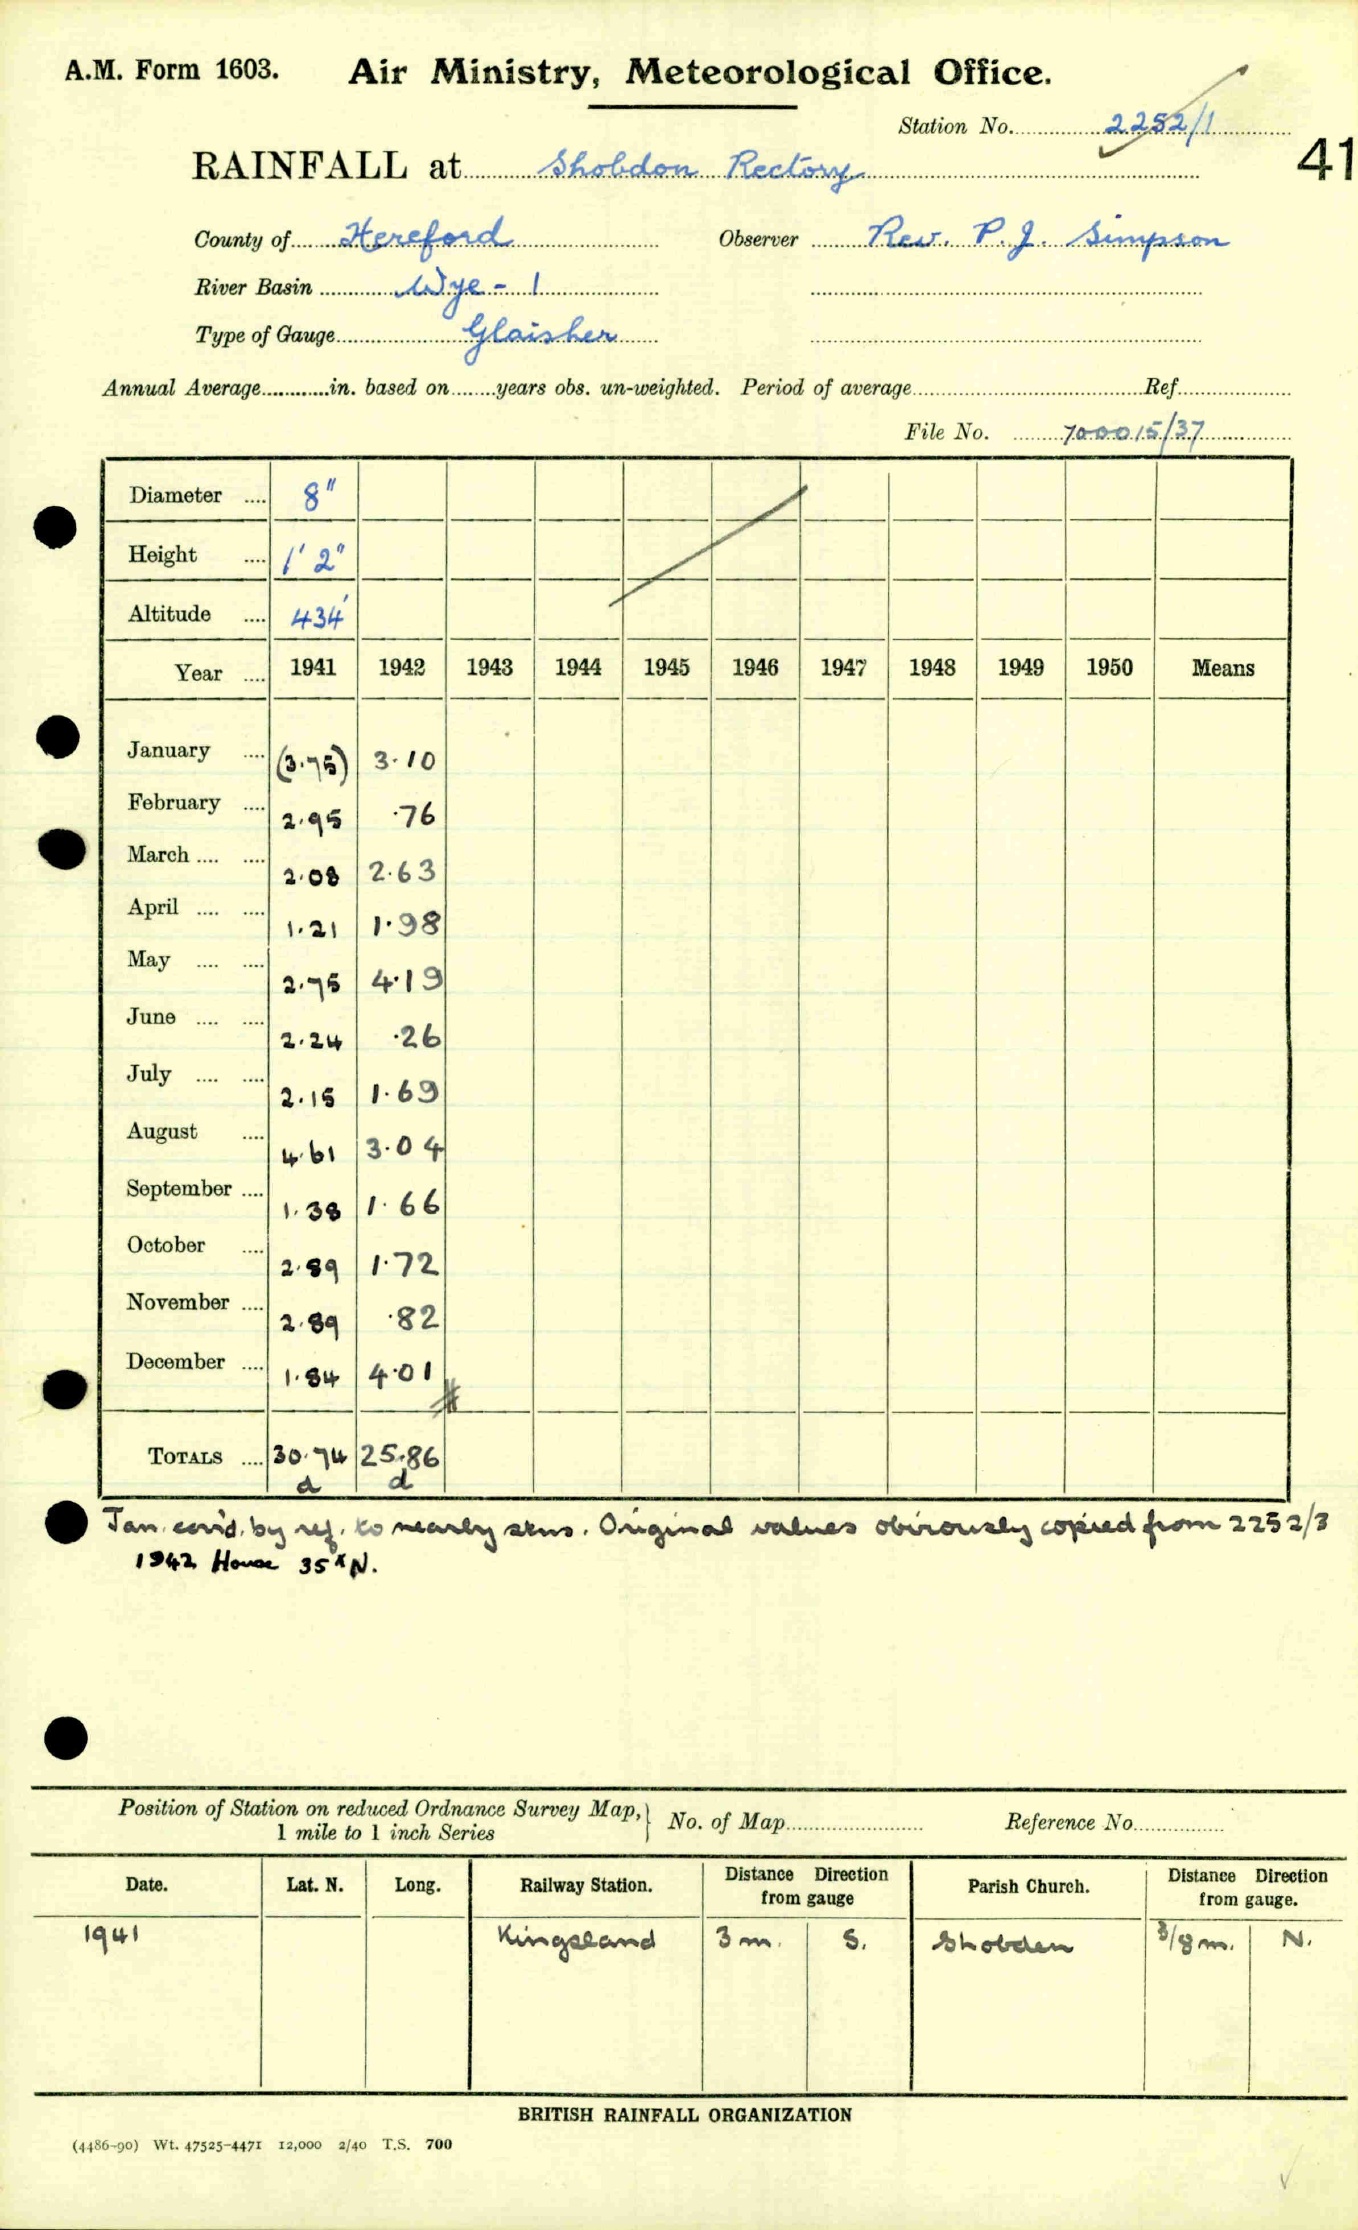 A.M. Form 1603. Air Ministry, Meteorological Office.
Station No. 2252/1
41
RAINFALL at Shobdon Rectory
County of Hereford Observer Rev. P. J. Simpson
River Basin Wye - 1
Type of Gauge Glaisher
Annual Average............in. based on........years obs. un-weighted. Period of average........Ref........
File No. 700015/37
Diameter .... 8"
Height .... 1' 2"
Altitude .... 434'
Year .... 1941 1942 1943 1944 1945 1946 1947 1948 1949 1950 Means
January .... (3.75) 3.10
February .... 2.95 .76
March .... .... 2.08 2.63
April .... .... 1.21 1.98
May .... .... 2.75 4.19
June .... .... 2.24 .26
July .... .... 2.15 1.69
August .... 4.61 3.04
September .... 1.38 1.66
October .... 2.89 1.72
November .... 2.89 .82
December .... 1.84 4.01
TOTALS .... 30.74 25.86
d d
Jan. con'd. by ref. to nearby stns. Original values obviously copied from 2252/3
1942 House 35x N.
Position of Station on reduced Ordnance Survey Map, 1 mile to 1 inch Series } No. of Map........ Reference No........
Date. Lat. N. Long. Railway Station. Distance Direction from gauge Parish Church. Distance Direction from gauge.
1941 Kingsland 3 m. S. Shobden 3/8 m. N.
BRITISH RAINFALL ORGANIZATION
(4486-90) Wt. 47525-4471 12,000 2/40 T.S. 700